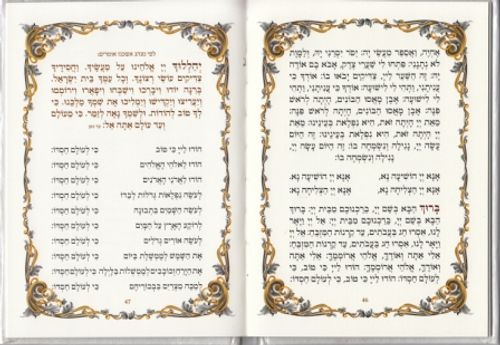 אֶחְיֶה, וַאֲסַפֵּר מַעֲשֵׂי יָהּ: יַסֹּר יִסְּרַנִּי יָּהּ, וְלַמָּוֶת
לֹא נְתָנָנִי: פִּתְחוּ לִי שַׁעֲרֵי צֶדֶק, אָבֹא בָם אוֹדֶה
יָהּ: זֶה הַשַּׁעַר לַיְיָ, צַדִּיקִים יָבֹאוּ בוֹ: אוֹדְךָ כִּי
עֲנִיתָנִי, וַתְּהִי לִי לִישׁוּעָה: אוֹדְךָ כִּי עֲנִיתָנִי, וַתְּהִי
לִי לִישׁוּעָה: אֶבֶן מָאֲסוּ הַבּוֹנִים, הָיְתָה לְרֹאשׁ
פִּנָּה: אֶבֶן מָאֲסוּ הַבּוֹנִים, הָיְתָה לְרֹאשׁ פִּנָּה: מֵאֵת
יְיָ הָיְתָה זֹּאת, הִיא נִפְלָאת בְּעֵינֵינוּ: מֵאֵת
יְיָ הָיְתָה זֹּאת, הִיא נִפְלָאת בְּעֵינֵינוּ: זֶה הַיּוֹם
עָשָׂה יְיָ, נָגִילָה וְנִשְׂמְחָה בוֹ: זֶה הַיּוֹם עָשָׂה יְיָ,
נָגִילָה וְנִשְׂמְחָה בוֹ:
אָנָּא יְיָ הוֹשִׁיעָה נָּא, אָנָּא יְיָ הוֹשִׁיעָה נָּא:
אָנָּא יְיָ הַצְלִיחָה נָא, אָנָּא יְיָ הַצְלִיחָה נָא:
בָּרוּךְ הַבָּא בְּשֵׁם יְיָ, בֵּרַכְנוּכֶם מִבֵּית יְיָ: בָּרוּךְ
הַבָּא בְּשֵׁם יְיָ, בֵּרַכְנוּכֶם מִבֵּית יְיָ: אֵל יְיָ וַיָּאֶר
לָנוּ, אִסְרוּ חַג בַּעֲבֹתִים, עַד קַרְנוֹת הַמִּזְבֵּחַ: אֵל יְיָ
וַיָּאֶר לָנוּ, אִסְרוּ חַג בַּעֲבֹתִים, עַד קַרְנוֹת הַמִּזְבֵּחַ:
אֵלִי אַתָּה וְאוֹדֶךָּ, אֱלֹהַי אֲרוֹמְמֶךָּ: אֵלִי אַתָּה
וְאוֹדֶךָּ, אֱלֹהַי אֲרוֹמְמֶךָּ: הוֹדוּ לַייָ כִּי טוֹב, כִּי
לְעוֹלָם חַסְדּוֹ: הוֹדוּ לַייָ כִּי טוֹב, כִּי לְעוֹלָם חַסְדּוֹ:
46
לפי מנהג אשכנז אומרים:
יְהַלְלוּךָ יְיָ אֱלֹהֵינוּ עַל מַעֲשֶׂיךָ. וַחֲסִידֶיךָ
צַדִּיקִים עוֹשֵׂי רְצוֹנֶךָ. וְכָל עַמְּךָ בֵּית יִשְׂרָאֵל.
בְּרִנָּה יוֹדוּ וִיבָרְכוּ וִישַׁבְּחוּ וִיפָאֲרוּ וִירוֹמְמוּ
וְיַעֲרִיצוּ וְיַקְדִּישׁוּ וְיַמְלִיכוּ אֶת שִׁמְךָ מַלְכֵּנוּ. כִּי
לְךָ טוֹב לְהוֹדוֹת. וּלְשִׁמְךָ נָאֶה לְזַמֵּר. כִּי מֵעוֹלָם
וְעַד עוֹלָם אַתָּה אֵל:
הוֹדוּ לַייָ כִּי טוֹב כִּי לְעוֹלָם חַסְדּוֹ:
הוֹדוּ לֵאלֹהֵי הָאֱלֹהִים כִּי לְעוֹלָם חַסְדּוֹ:
הוֹדוּ לַאֲדֹנֵי הָאֲדֹנִים כִּי לְעוֹלָם חַסְדּוֹ:
לְעֹשֵׂה נִפְלָאוֹת גְּדֹלוֹת לְבַדּוֹ כִּי לְעוֹלָם חַסְדּוֹ:
לְעֹשֵׂה הַשָּׁמַיִם בִּתְבוּנָה כִּי לְעוֹלָם חַסְדּוֹ:
לְרוֹקַע הָאָרֶץ עַל הַמָּיִם כִּי לְעוֹלָם חַסְדּוֹ:
לְעֹשֵׂה אוֹרִים גְּדֹלִים כִּי לְעוֹלָם חַסְדּוֹ:
אֶת הַשֶּׁמֶשׁ לְמֶמְשֶׁלֶת בַּיּוֹם כִּי לְעוֹלָם חַסְדּוֹ:
אֶת הַיָּרֵחַ וְכוֹכָבִים לְמֶמְשְׁלוֹת בַּלָּיְלָה כִּי לְעוֹלָם חַסְדּוֹ:
לְמַכֵּה מִצְרַיִם בִּבְכוֹרֵיהֶם כִּי לְעוֹלָם חַסְדּוֹ:
47